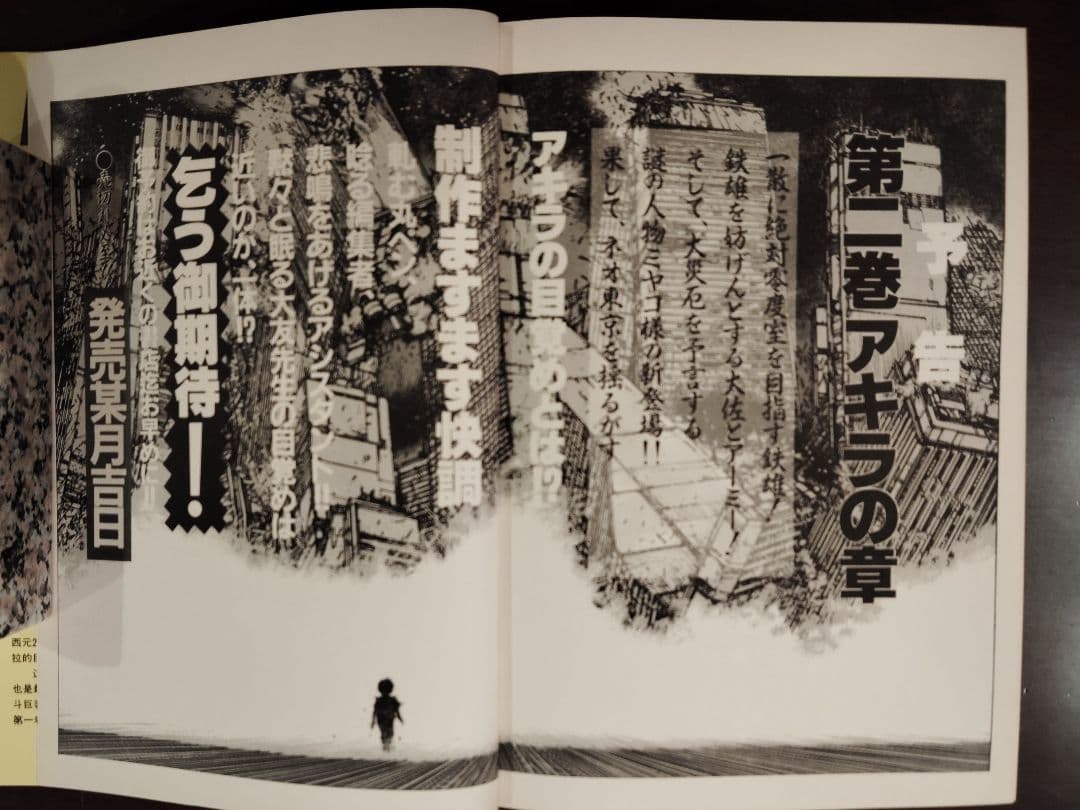 予告
第二巻アキラの章
一散に絶対零度室を目指す鉄雄!
鉄雄を妨げんとする大佐とアーミー!
そして、大災厄を予言する
謎の人物ミヤコ様の新登場!!
果して、ネオ東京を揺るがす
アキラの目覚めとは!?
制作ますます快調
軋む丸ペン、
悲鳴をあげるアシスタント!!
黙々と眠る大友先生の目覚めは
近いのか一体!?
乞う御期待!
発売某月吉日
西元2
也是
第一